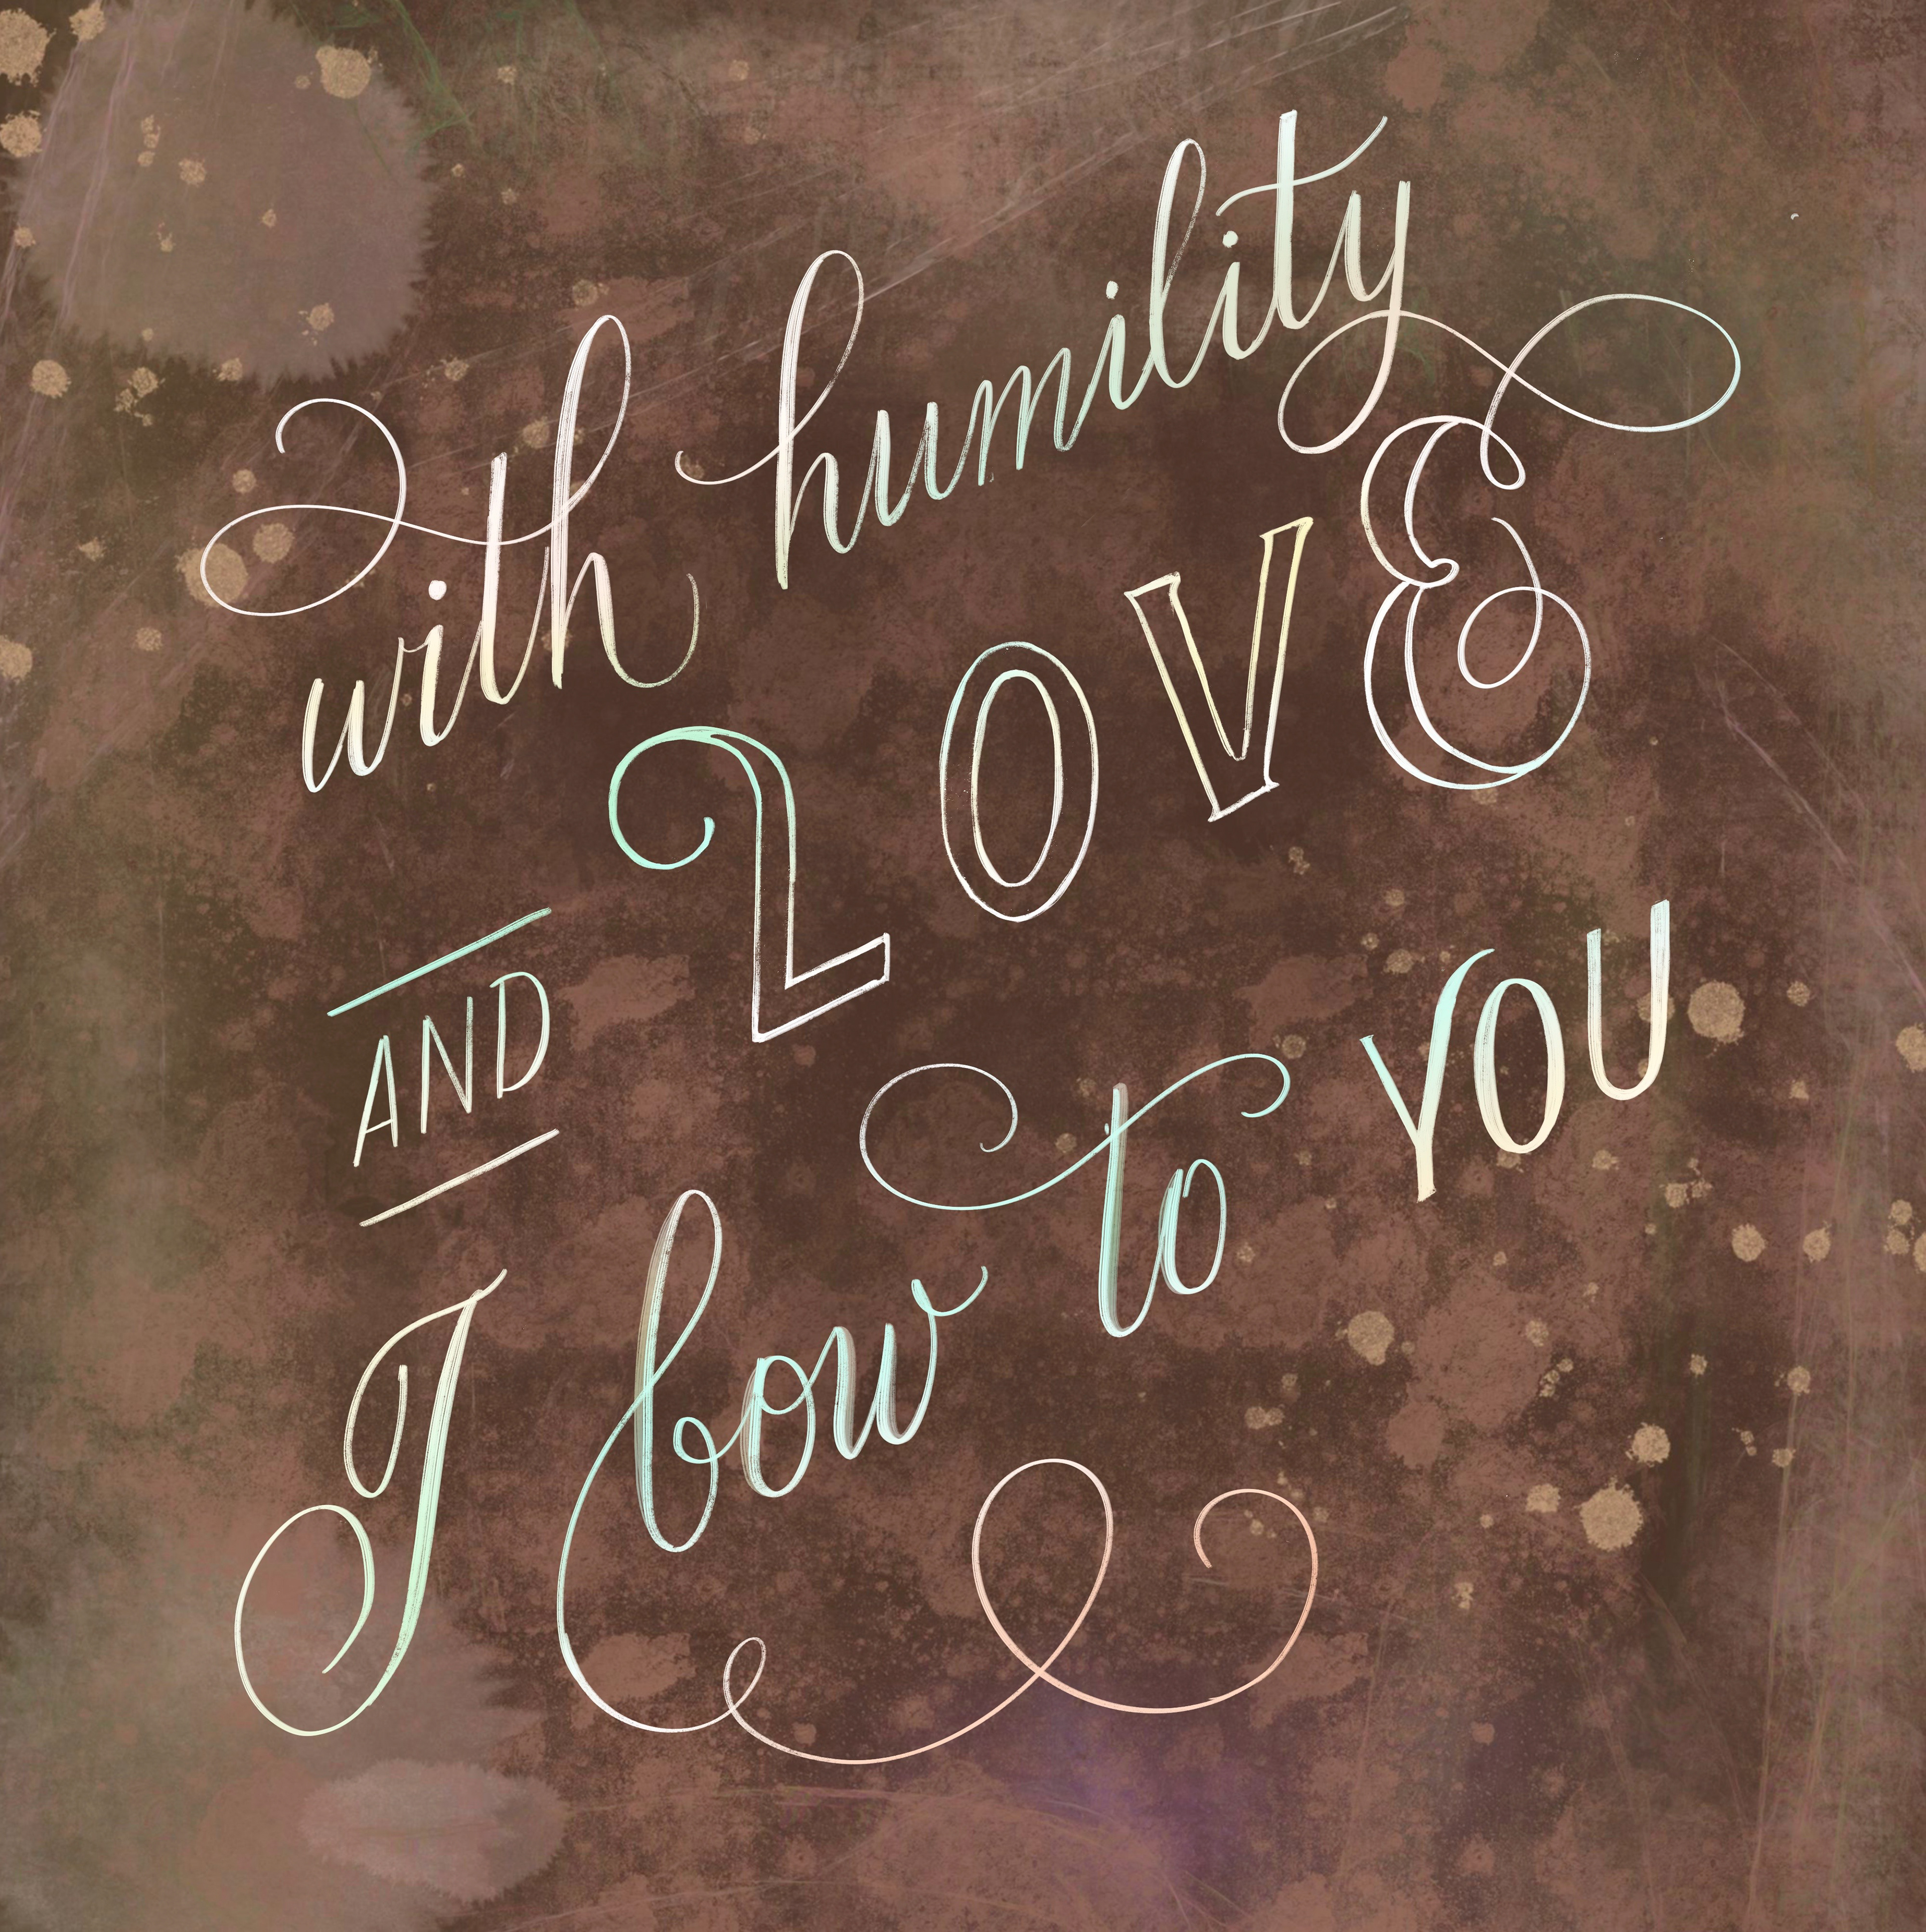 with humility
AND LOVE
I bow to YOU